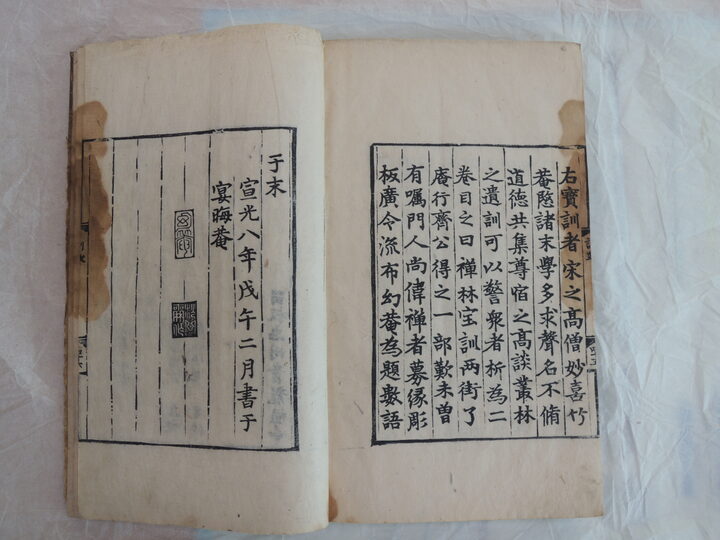 右寳訓者宋之髙僧妙喜竹
菴愍諸末學多求聲名不脩
道德共集尊宿之髙談叢林
之遺訓可以警衆者析為二
卷目之曰禅林宝訓两街了
庵行齊公得之一部歎未曽
有嘱門人尚偉禅者募縁彫
板廣令流布幻菴為題數語
于末
宣光八年戊午二月書于
宴晦菴